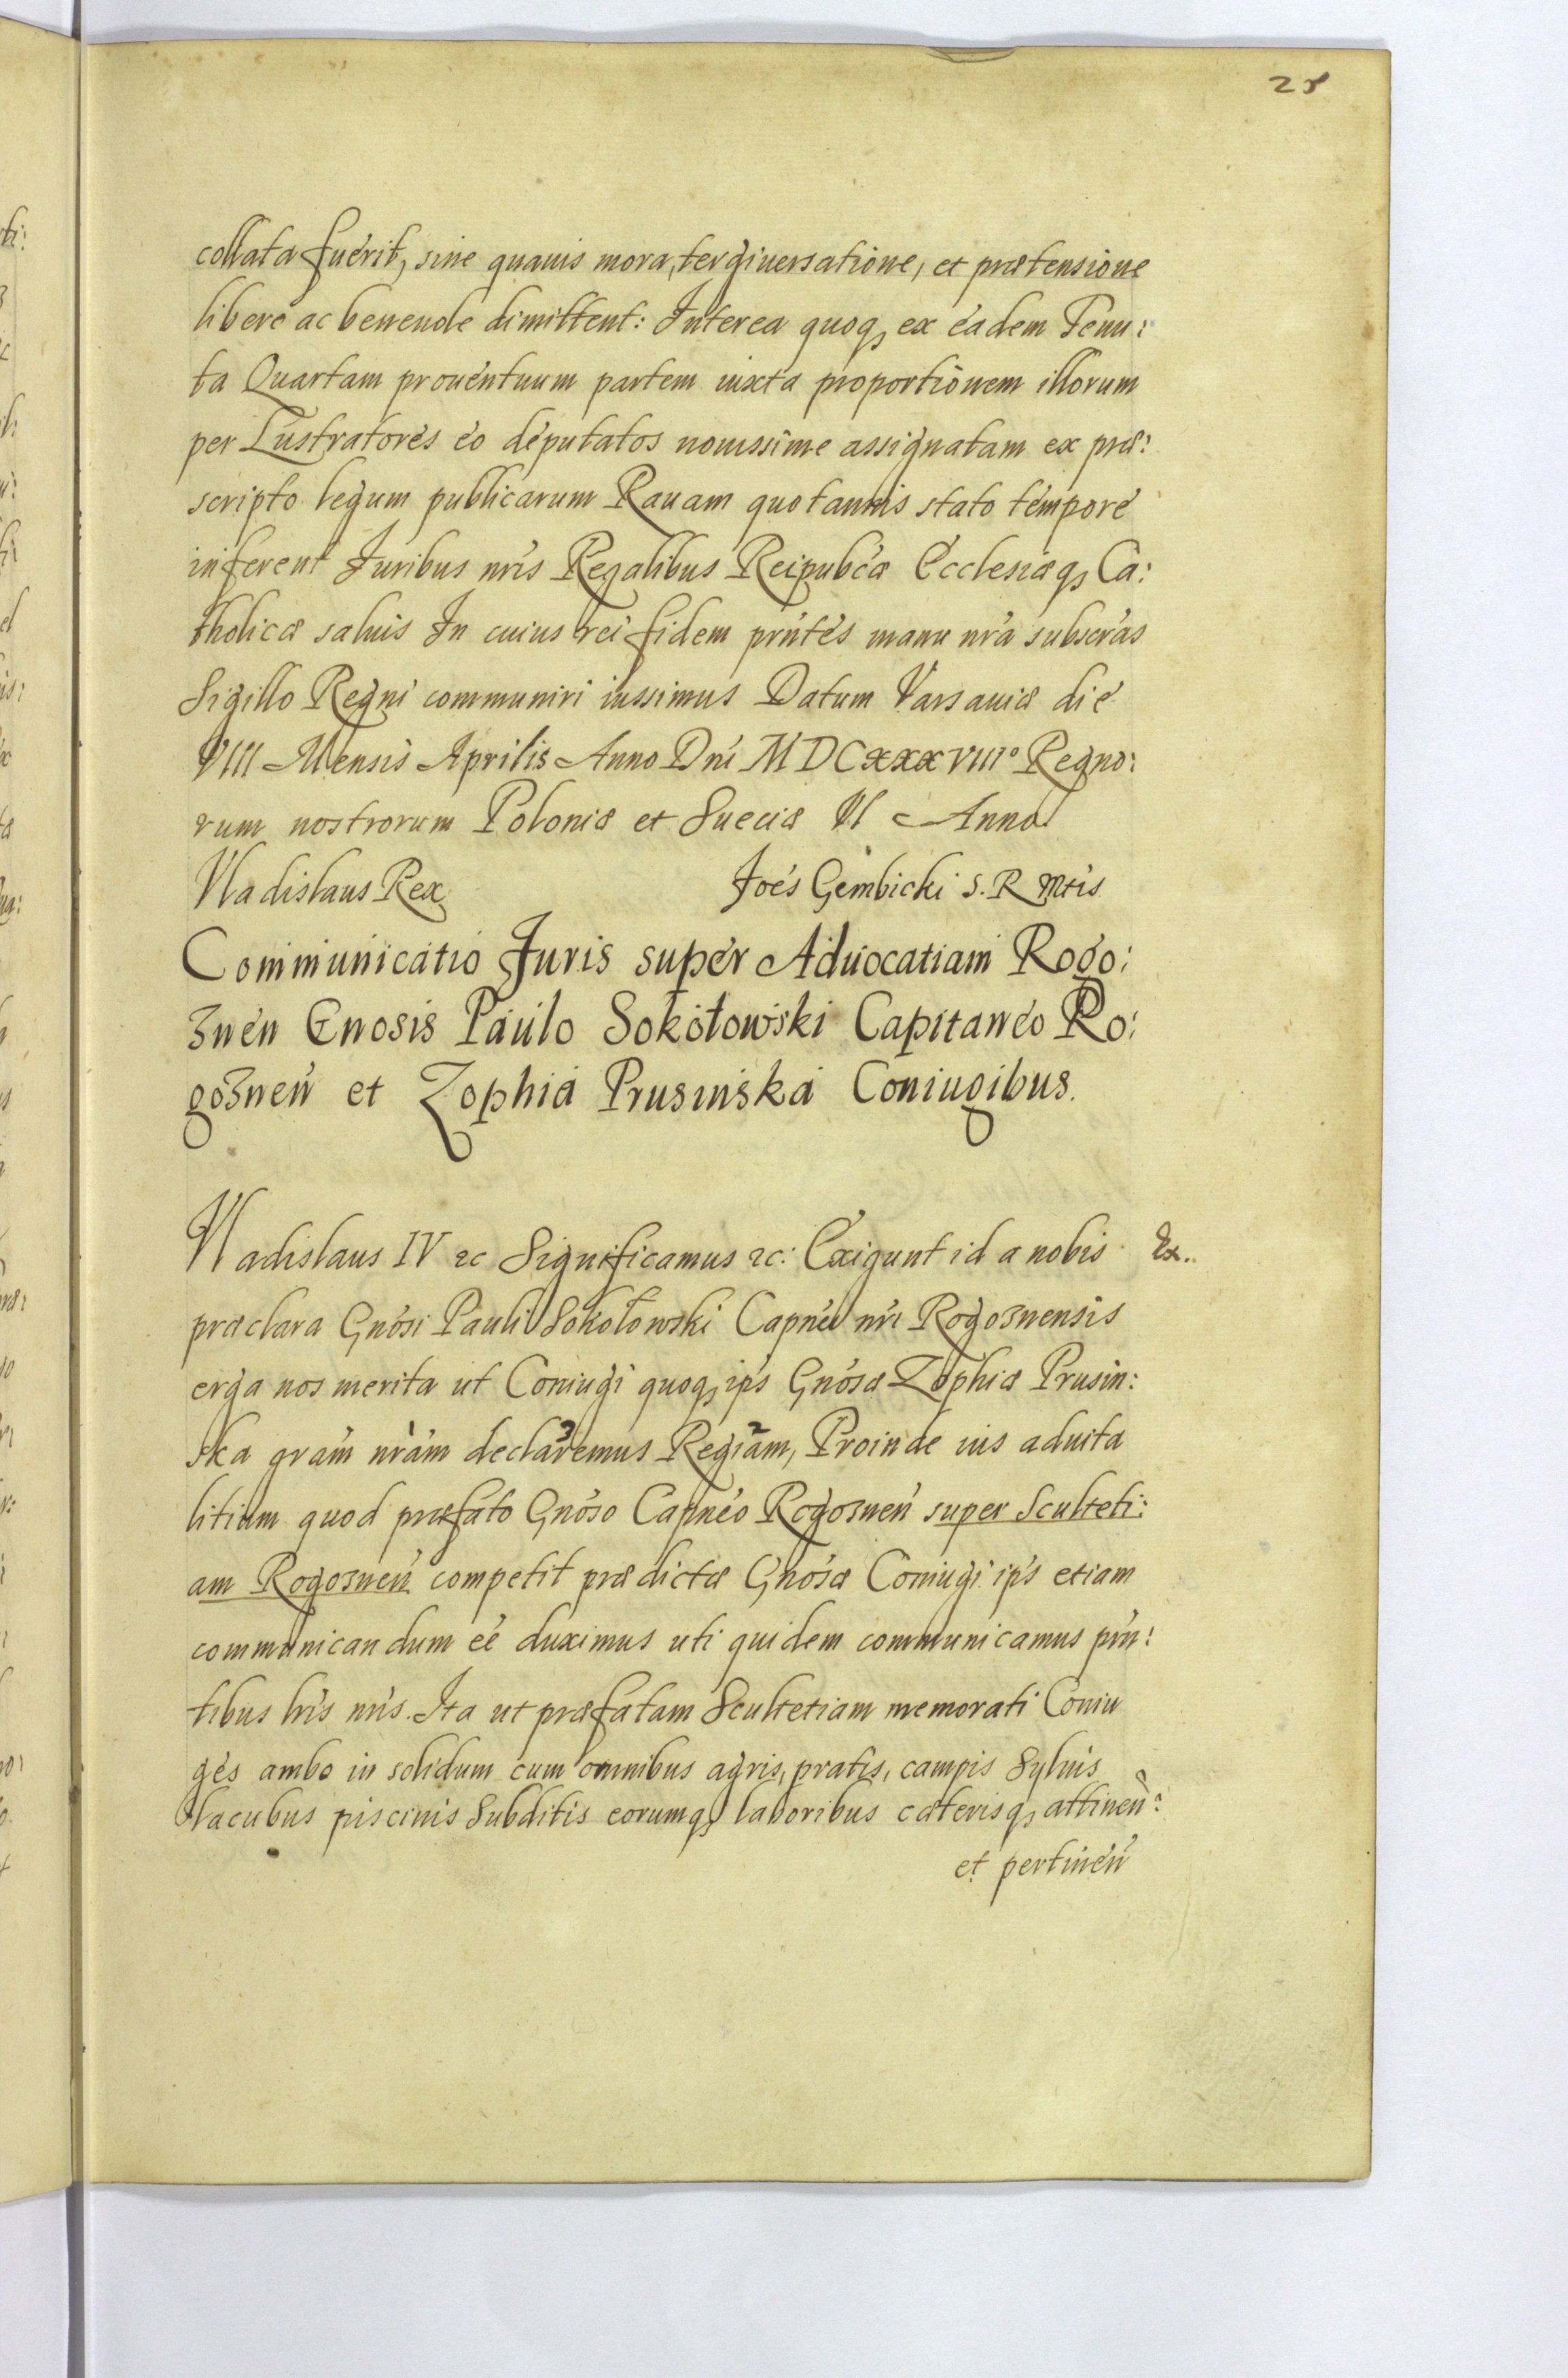 28
collata fuerit, sine quauis mora, tergiuersatione, et prætensione
libere ac beneuole dimittent: Interea quoq, ex eadem Tenu:
ta Quartam prouentuum partem iuxta proportionem illorum
per Lustratores eo deputatos nouissime assignatam ex præ:
scripto legum publicarum Rauam quotannis stato tempore
inferent Juribus nris Regalibus Reipubcæ Ecclesiæq, Ca:
tholicæ saluis In cuius rei fidem prntes manu nra subscras
Sigillo Regni communiri iussimus Datum Varsauiæ die
VIII Mensis Aprilis Anno Dni MDCXXXVIII° Regno:
rum nostrorum Poloniæ et Sueciæ VI Anno
Vladislaus Rex Joes Gembicki S. R Mtis
Communicatio Juris super Aduocatiam Rogo:
znen Gnosis Paulo Sokołowski Capitaneo Ro:
goznen et Zophia Prusinska Coniugibus.
Vladislaus IV ꝛc Significamus ꝛc: Exigunt id a nobis Ex..
præclara Gnosi Pauli Sokołowski Capnei nri Rogoznensis
erga nos merita ut Coniugi quoq, ips Gnosæ Zophiæ Prusin:
ska gram nram declaremus Regiam, Proinde ius aduita
litium quod præfato Gnoso Capneo Rogoznen super Sculteti:
am Rogoznen competit prædictæ Gnosæ Coniugi ips etiam
communicandum ee duximus uti quidem communicamus prn:
tibus lris nris. Ita ut præfatam Scultetiam memorati Coniu
ges ambo in solidum cum omnibus agris, pratis, campis Syluis
lacubus piscinis Subditis eorumq, laboribus cæterisq, attinen:
et pertinen